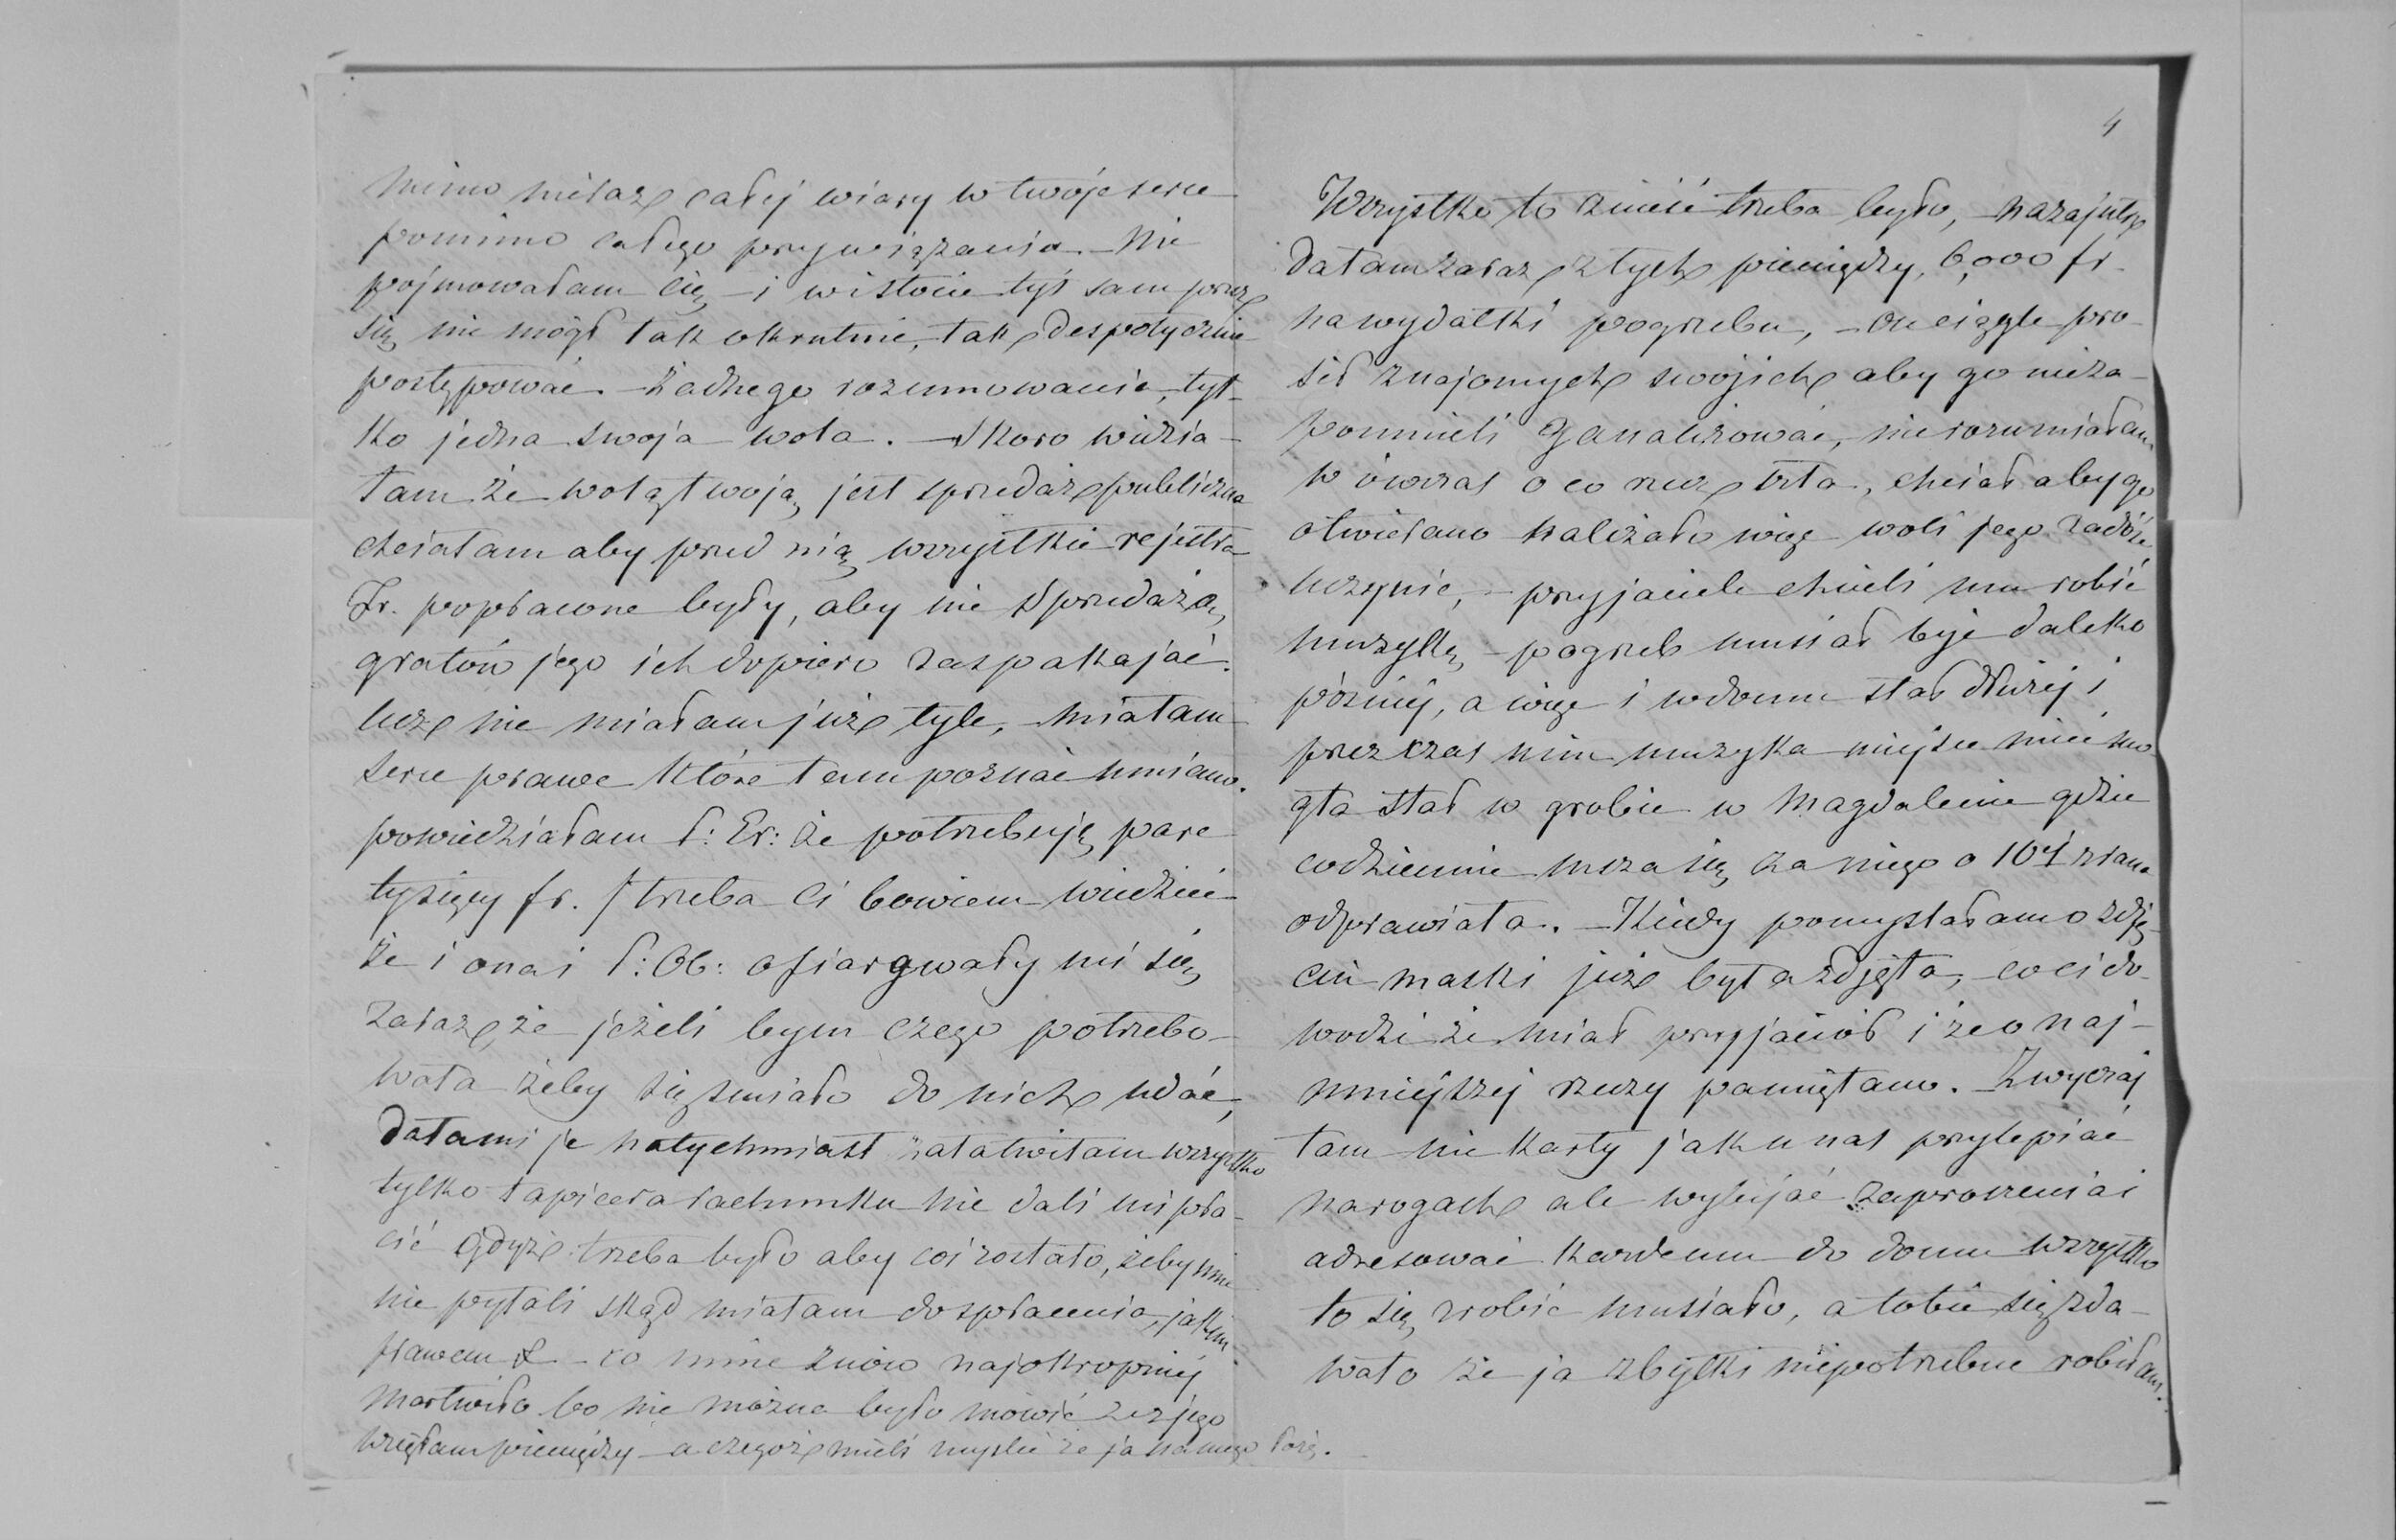 mimo nieraz całej wiary w twoje serce
pomimo całego przywiązania. – Nie
pojmowałam Cię – i w istocie tyś sam przez
się nie mógł tak okrutnie, tak despotycznie
postępować. – żadnego rozumowania, tyl-
ko jedna swoja wola. – Skoro widzia-
łam że wolą twoją jest sprzedaż publiczna
chciałam aby przed nią wszystkie rejestra
Fr. popłacone były, aby nie Sprzedażą
gratów jego ich dopiero zaspakajać.
lecz nie miałam już tyle, – miałam
serce prawe które tam poznać umiano.
powiedziałam P: Er: że potrzebuję pare
tysięcy fr. / trzeba Ci bowiem wiedzieć
że i ona i P: Ob: ofiarowały mi się
zaraz, że jeżeli bym czego potrzebo-
wała żeby się śmiało do nich udać,
dała mi je natychmiast załatwiłam wszystko
tylko tapicera rachunku nie dali mi pła-
cić gdyż trzeba było aby coś zostało, żeby mnie
nie pytali skąd miałam do spłacenia, jakim
prawem – co mnie znów najokropniej
martwiło bo nie można było mówić że z jego
wzięłam pieniędzy – a czegoż mieli myśleć że ja na niego łożę.
4
Wszystko to znieść trzeba było, – nazajutrz
dałam zaraz z tych pieniędzy, 6,000 fr.
na wydatki pogrzebu, – On ciągle pro-
sił znajomych swojich aby go nieza-
pomnieli Ganalizować, nie rozumiałam
w ówczas o co rzecz szła, chciał aby go
otwierano należało więc woli jego zadość
uczynić, – przyjaciele chcieli mu robić
muzykę, – pogrzeb musiał być daleko
później, a więc i w domu stał dłużej i
przez czas nim muzyka miejsce mieć mo-
gła stał w grobie w Magdalenie gdzie
codziennie msza się za niego o 10ej zrana
odprawiała. – Kiedy pomyślałam o zdję-
ciu maski już była zdjęta, co ci do-
wodzi że miał przyjaciół i że o naj-
mniejszej rzeczy pamiętano. Zwyczaj
tam nie karty jak u nas przylepiać
na rogach ale wybijać zaproszenia i
adresować każdemu do domu wszystko
to się zrobić musiało, a tobie się zda-
wało że ja zbytki niepotrzebne robiłam.